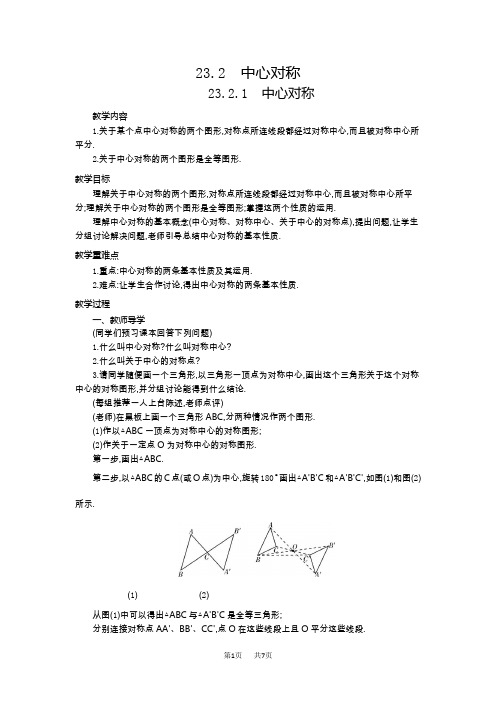 23.2 中心对称
23.2.1 中心对称
教学内容
1.关于某个点中心对称的两个图形,对称点所连线段都经过对称中心,而且被对称中心所
平分.
2.关于中心对称的两个图形是全等图形.
教学目标
理解关于中心对称的两个图形,对称点所连线段都经过对称中心,而且被对称中心所平
分;理解关于中心对称的两个图形是全等图形;掌握这两个性质的运用.
理解中心对称的基本概念(中心对称、对称中心、关于中心的对称点),提出问题,让学生
分组讨论解决问题,老师引导总结中心对称的基本性质.
教学重难点
1.重点:中心对称的两条基本性质及其运用.
2.难点:让学生合作讨论,得出中心对称的两条基本性质.
教学过程
一、教师导学
(同学们预习课本回答下列问题)
1.什么叫中心对称?什么叫对称中心?
2.什么叫关于中心的对称点?
3.请同学随便画一个三角形,以三角形一顶点为对称中心,画出这个三角形关于这个对称
中心的对称图形,并分组讨论能得到什么结论.
(每组推荐一人上台陈述,老师点评)
(老师)在黑板上画一个三角形 ABC,分两种情况作两个图形.
(1)作以△ABC 一顶点为对称中心的对称图形;
(2)作关于一定点 O 为对称中心的对称图形.
第一步,画出△ABC.
第二步,以△ABC 的 C 点(或 O 点)为中心,旋转 180°画出△A'B'C 和△A'B'C',如图(1)和图(2)
所示.
A B' C B A'
A O B' C B C' A'
(1) (2)
从图(1)中可以得出△ABC 与△A'B'C 是全等三角形;
分别连接对称点 AA'、BB'、CC',点 O 在这些线段上且 O 平分这些线段.
第1页 共7页